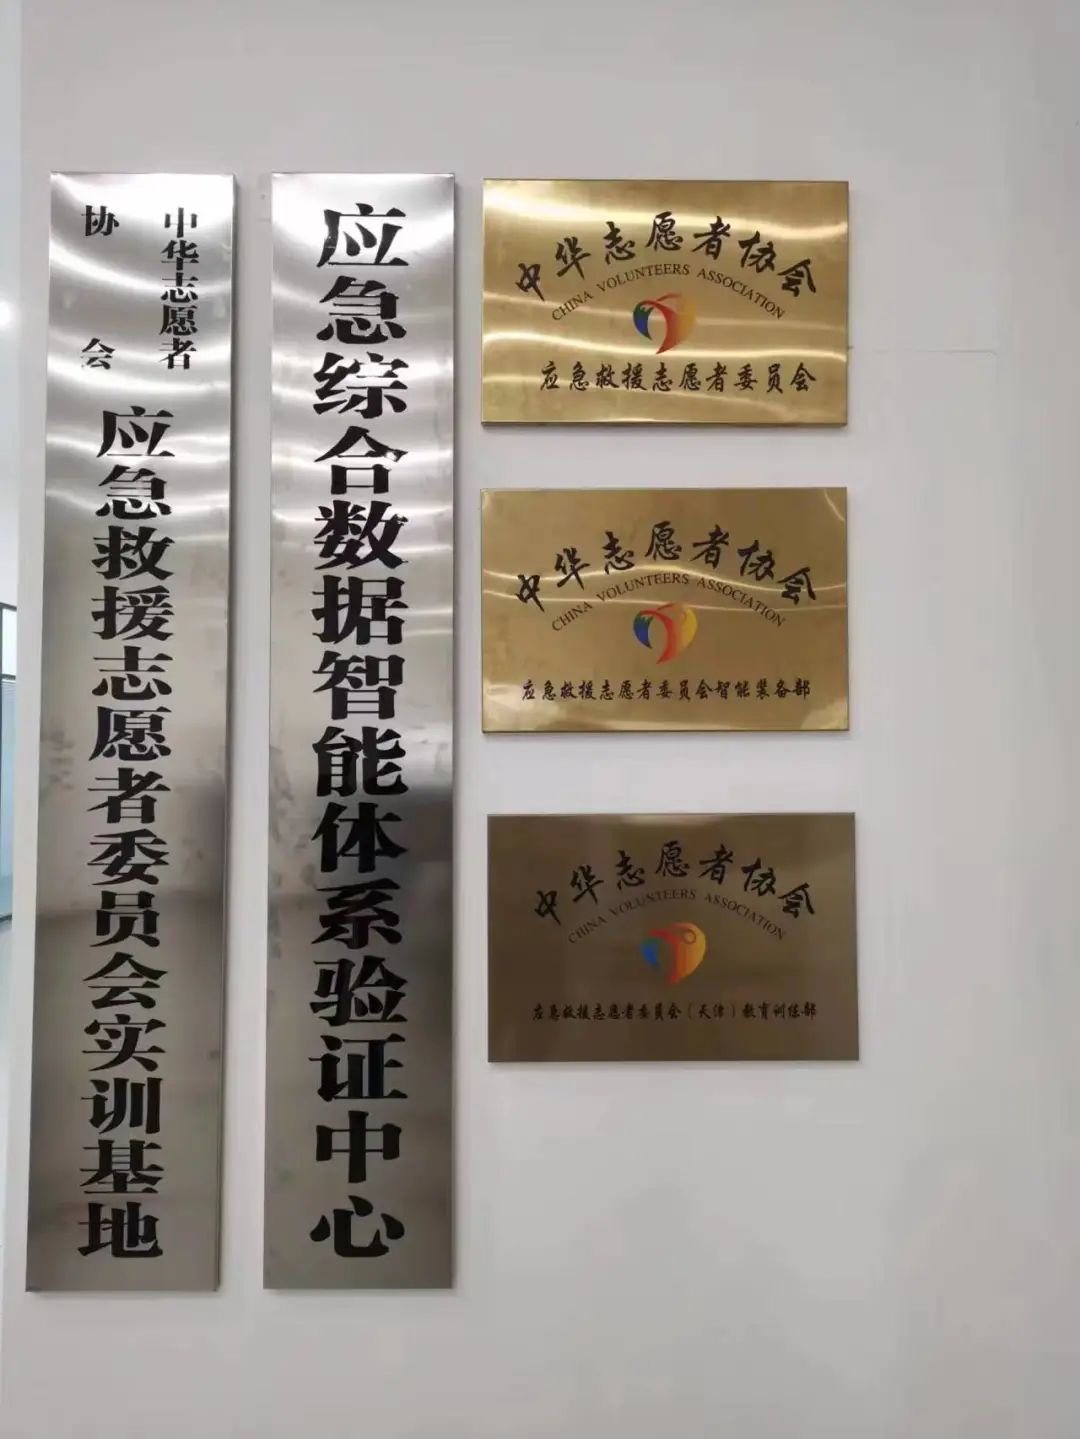 中华志愿者
协会
应急救援志愿者委员会实训基地
应急综合数据智能体系验证中心
中华志愿者协会
CHINA VOLUNTEERS ASSOCIATION
应急救援志愿者委员会
中华志愿者协会
CHINA VOLUNTEERS ASSOCIATION
应急救援志愿者委员会智能装备部
中华志愿者协会
CHINA VOLUNTEERS ASSOCIATION
应急救援志愿者委员会（天津）教育训练部